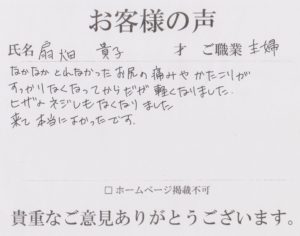 お客様の声
氏名 扇畑 貴子 才 ご職業 主婦
なかなかとれなかったお尻の痛みやかたこりが
すっかりなくなってからだが軽くなりました。
ヒザのネジレもなくなりました
来て本当によかったです。
□ホームページ掲載不可
貴重なご意見ありがとうございます。